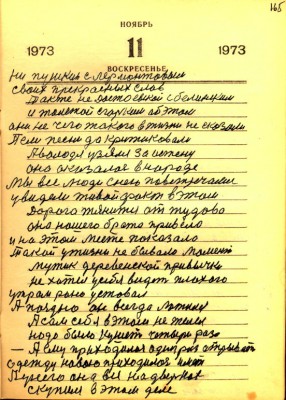 165
НОЯБРЬ
1973 11 1973
ВОСКРЕСЕНЬЕ
ни пушкин с лермонтовым
своих прекрасных слов
Также не достоевский с белинским
и толстой старик об этом
они не чего такого в жизни не сказали
А ем песни до критиковали
А володя узяли за истену
оно оказалос в народе
Мы все люди снего повстречали
увидем такой факт в этом
Дорого тянится от тудова
она нашего брата привело
и на этом месте показало
Такой ужизни не бывало момент
мужик деревенской привычки
не хотел усебя видет плохого
утром рано уставал
А поздно он всегда ложился
А сам себя в этом не жалел
надо было кушет четыри раза
— А ему приходилос один раз
одежду новою приходилос
А у него она вся на дырках
скупился в этом деле